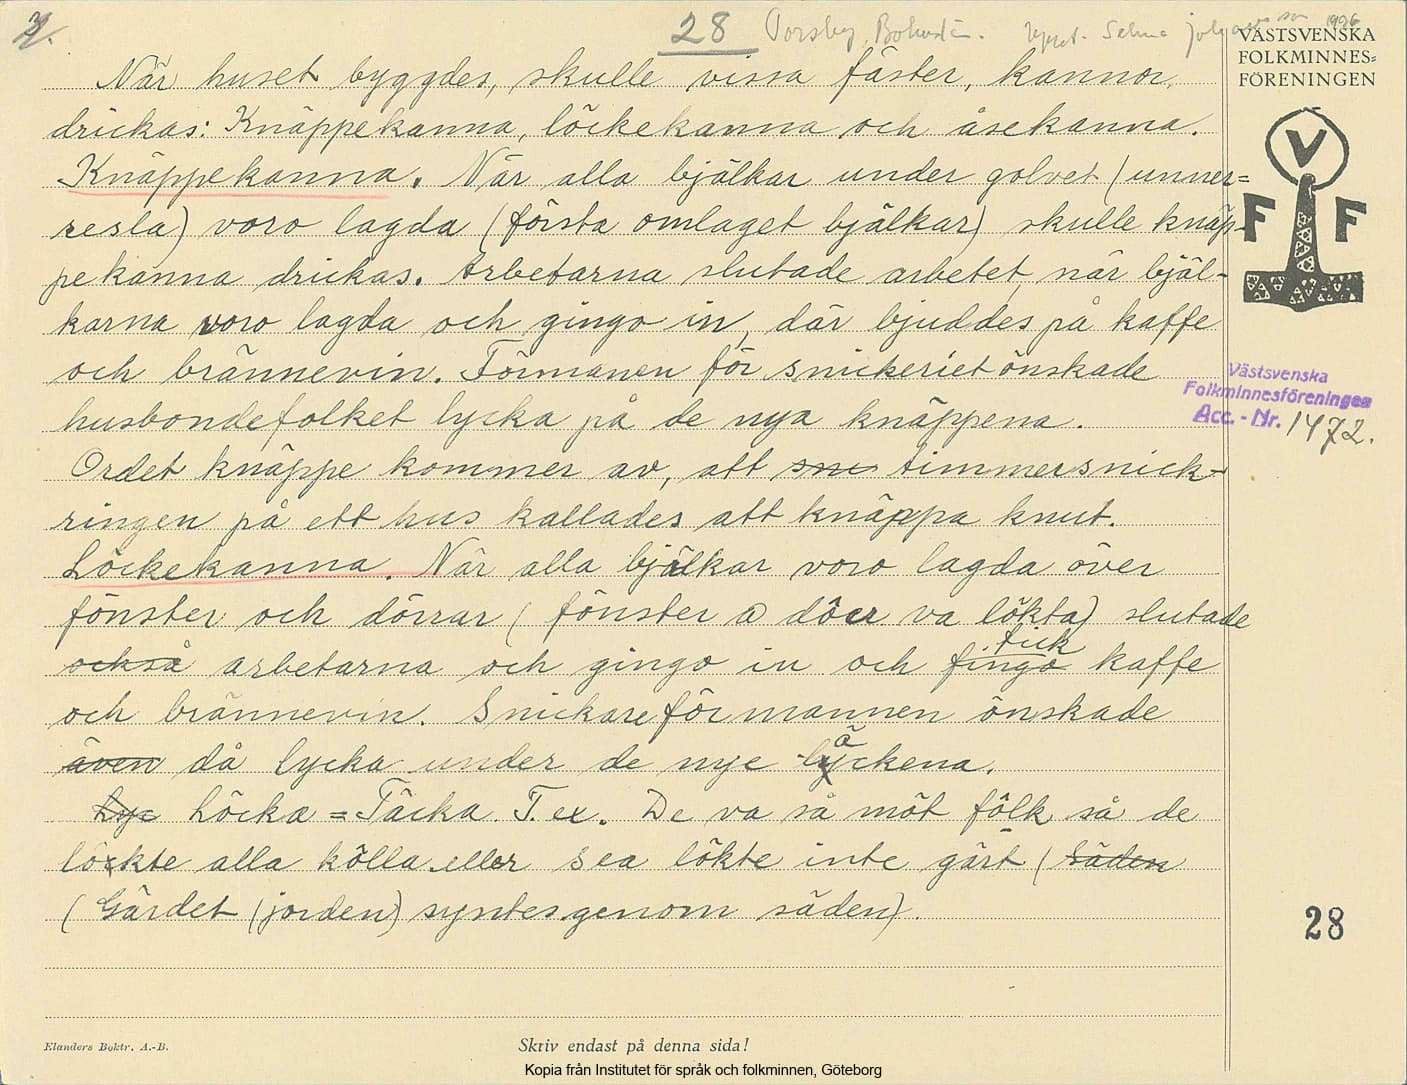 2.
28 Torsby, Bohuslän. Uppt. Selma Johansson 1926
VÄSTSVENSKA
FOLKMINNES=
FÖRENINGEN
V
F F
När huset byggdes, skulle vissa fäster, kannor,
drickas: Knäppekanna, löckekanna och åsekanna.
Knäppekanna. När alla bjälkar under golvet (unner=
resla) voro lagda (första omlaget bjälkar) skulle knäp-
pekanna drickas. Arbetarna slutade arbetet, när bjäl-
karna voro lagda och gingo in, där bjuddes på kaffe
och brännevin. Förmanen för snickeriet önskade
husbondefolket lycka på de nya knäppena.
Ordet knäppe kommer av, att sni timmersnick-
ringen på ett hus kallades att knäppa knut.
Löckekanna. När alla bjälkar voro lagda över
fönster och dörrar (fönster a dôer va lökta) slutade
också arbetarna och gingo in och fingo fick kaffe
och brännevin. Snickareförmannen önskade
även då lycka under de nye lyäckena.
Lyc Löcka = Täcka. T. ex. De va så môt fôlk så de
lökte alla kölla eller Sea lökte inte gärt (säden
(Gärdet (jorden) syntes genom säden).
Västsvenska
Folkminnesföreningen
Acc. - Nr. 1472.
28
Elanders Boktr. A.-B.
Skriv endast på denna sida!
Kopia från Institutet för språk och folkminnen, Göteborg